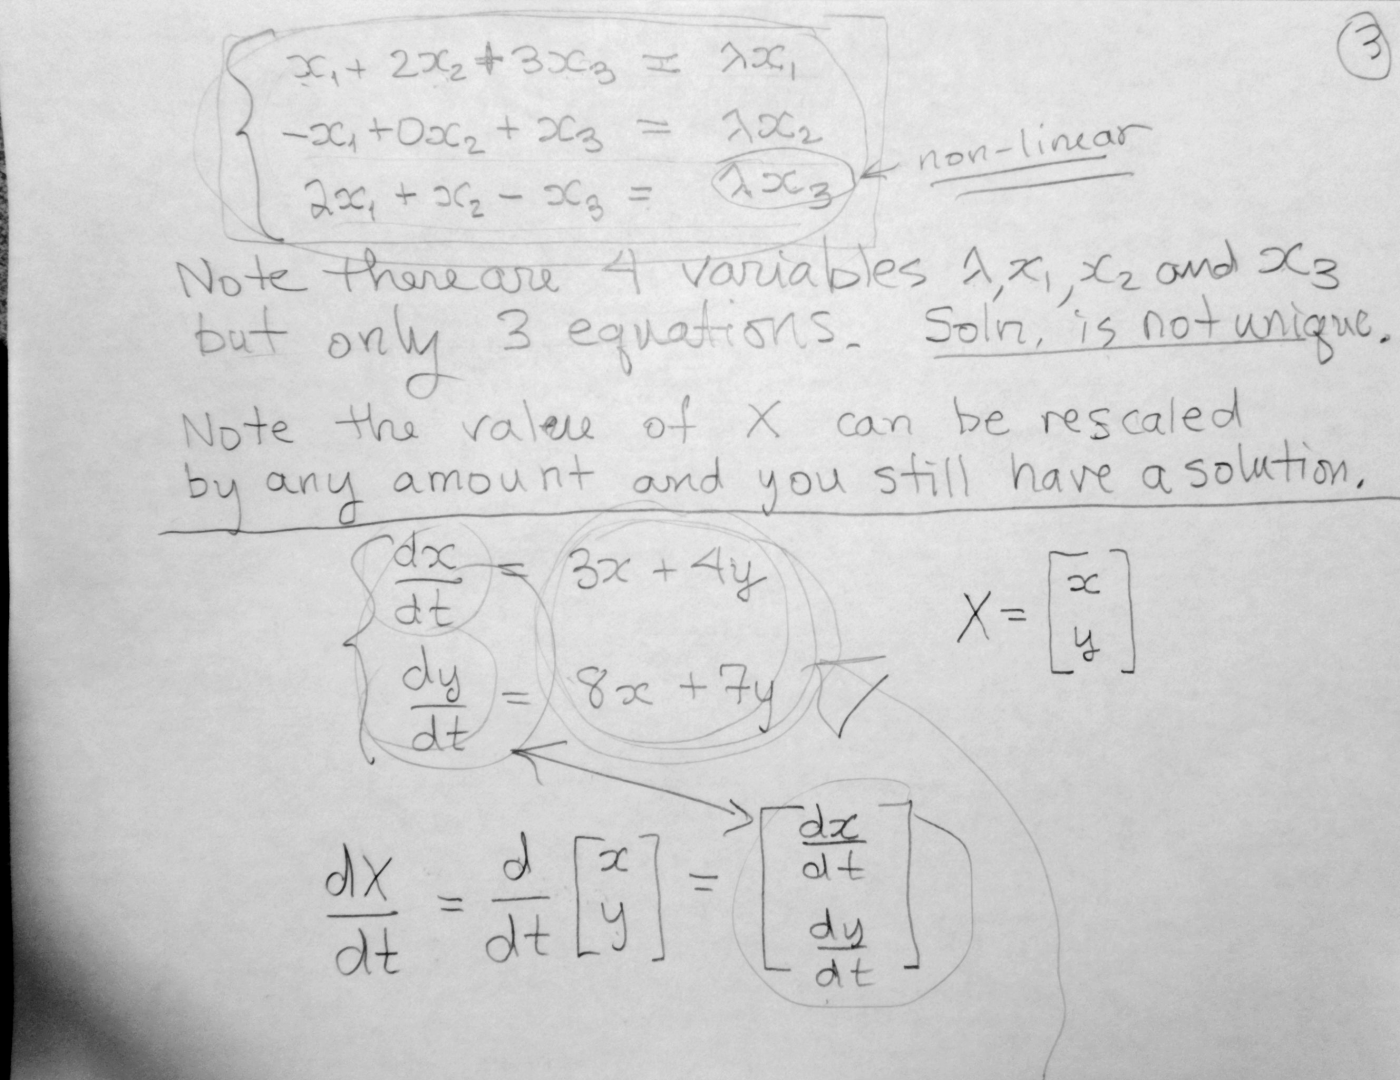 ③
x₁ + 2x₂ + 3x₃ = λx₁
-x₁ + 0x₂ + x₃ = λx₂
2x₁ + x₂ - x₃ = λx₃ non-linear
Note there are 4 variables λ, x₁, x₂ and x₃
but only 3 equations. Soln. is not unique.
Note the value of X can be rescaled
by any amount and you still have a solution.
dx/dt = 3x + 4y
dy/dt = 8x + 7y
X = [x y]
dX/dt = d/dt [x y] = [dx/dt dy/dt]